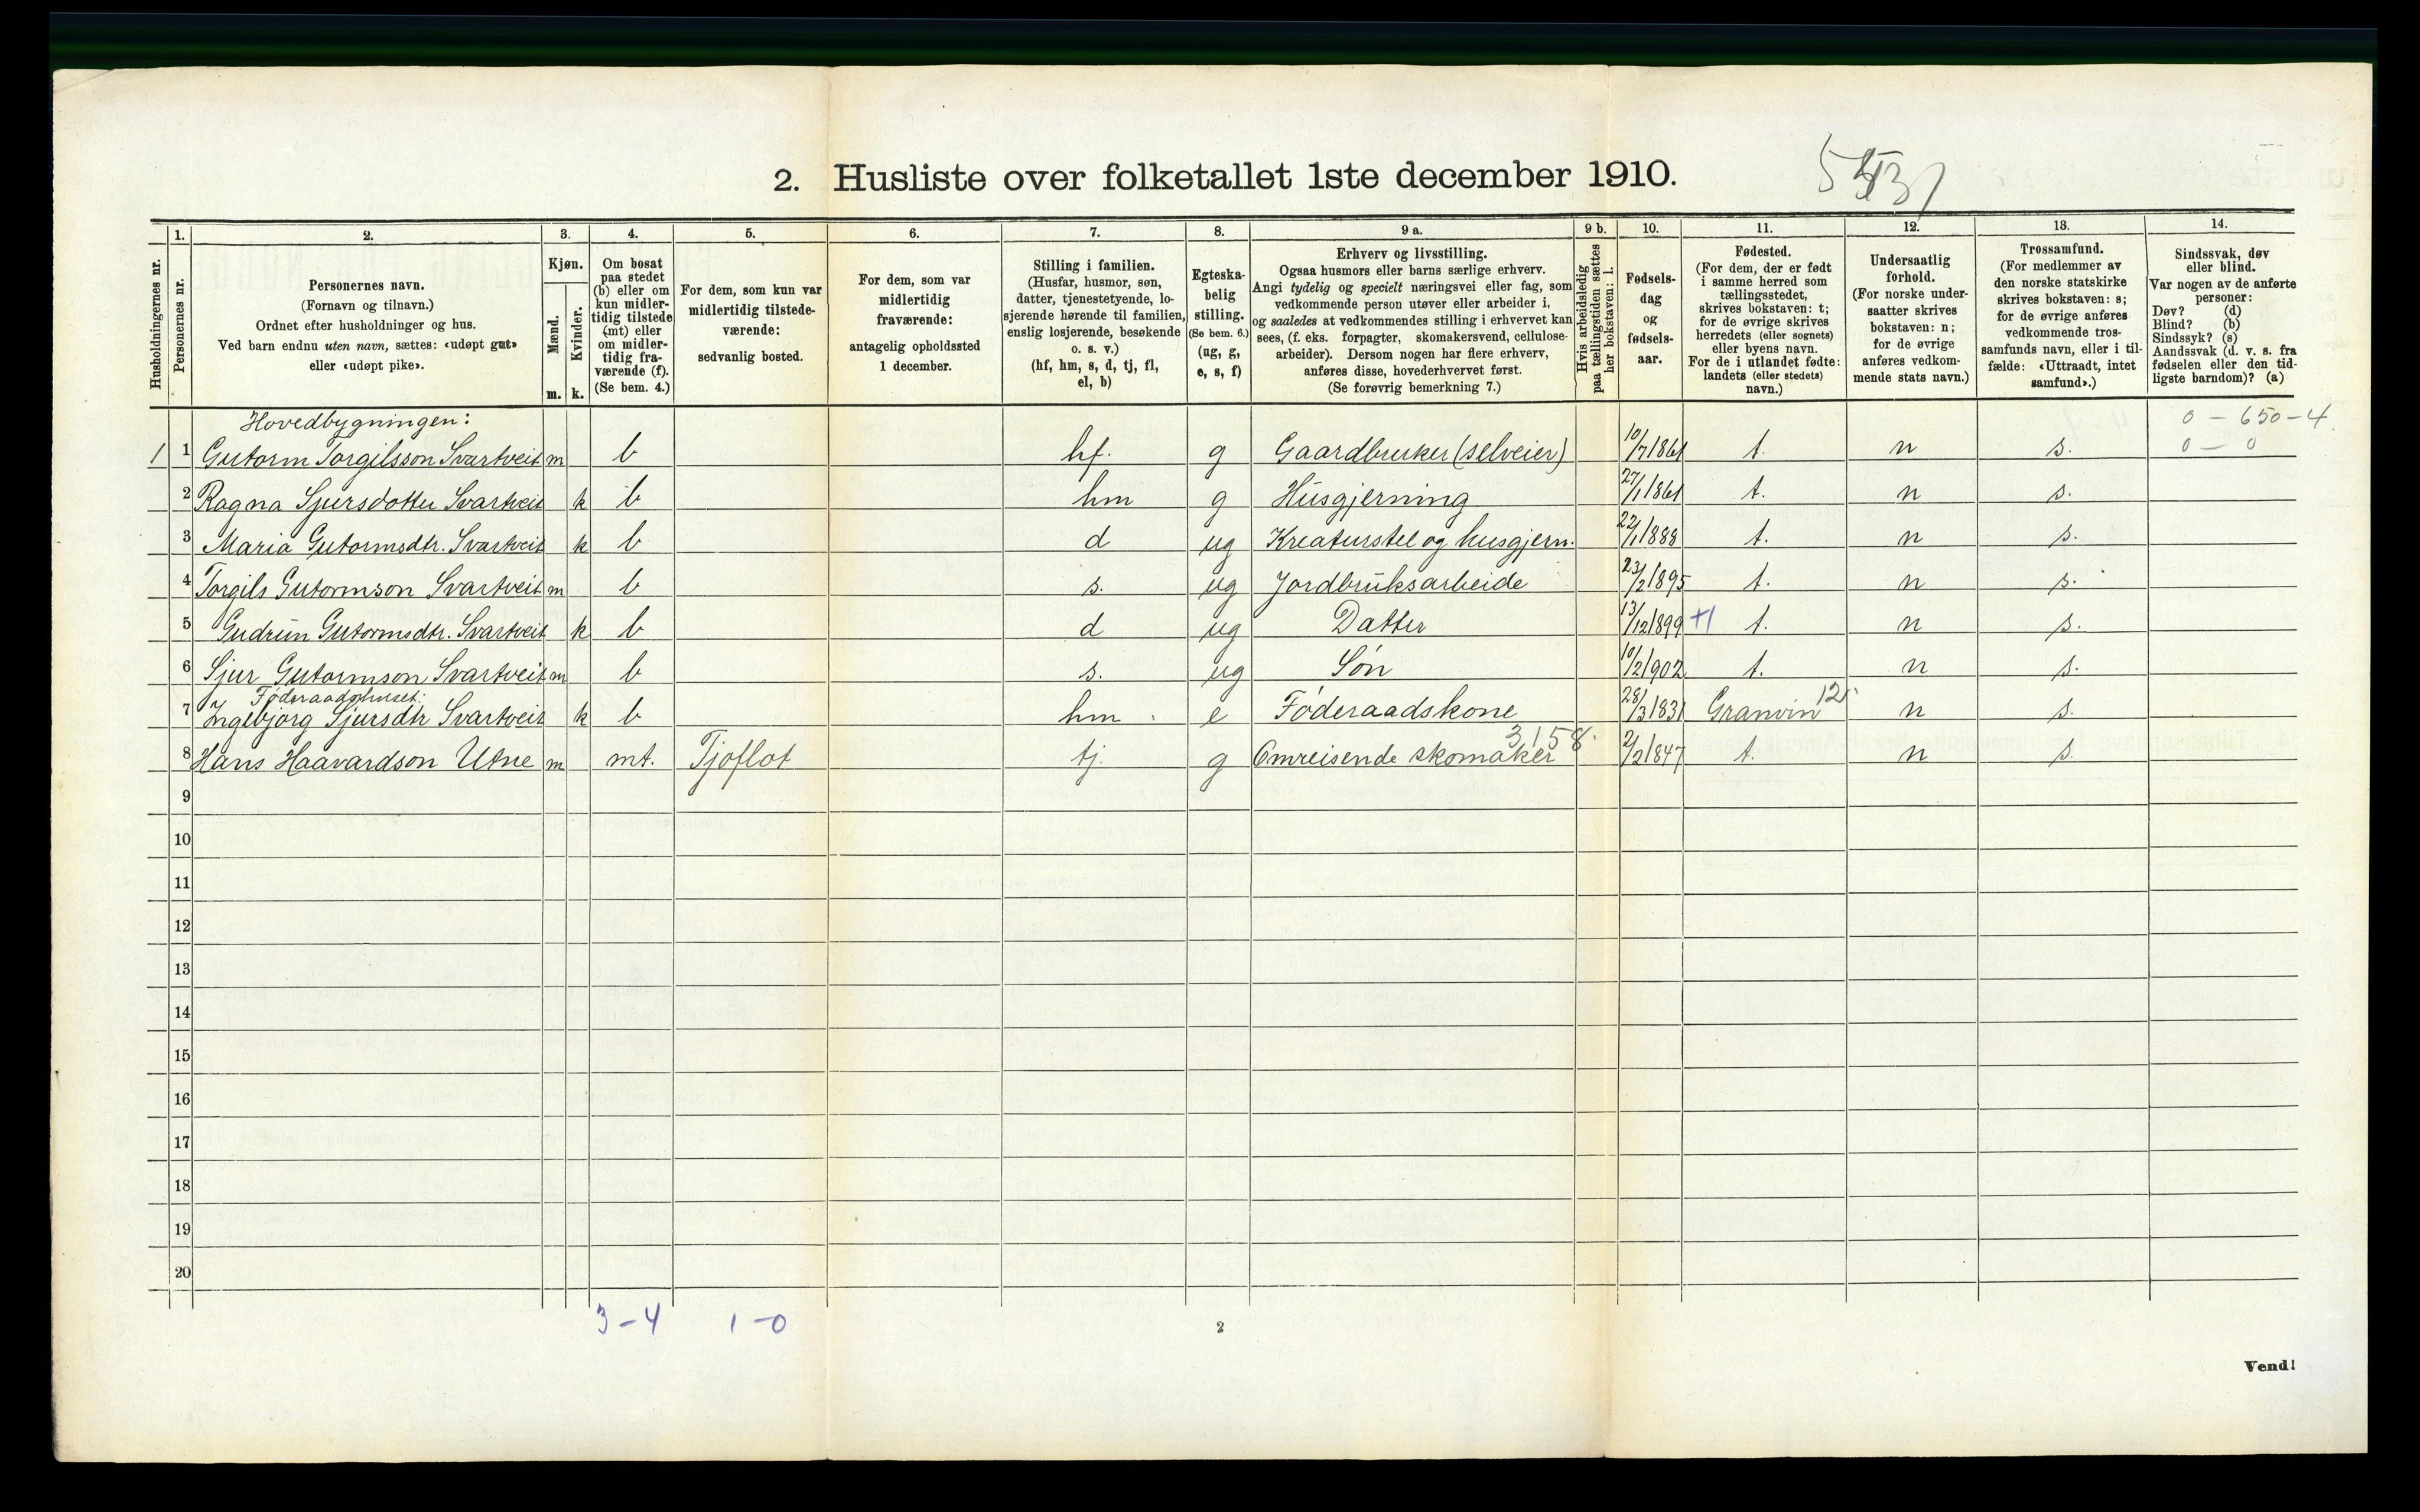 2. Husliste over folketallet 1ste december 1910.
Husholdningernes nr.
1.
Personernes nr.
2.
Personernes navn.
(Fornavn og tilnavn.)
Ordnet efter husholdninger og hus.
Ved barn endnu uten navn, sættes: «udøpt gut»
eller «udøpt pike».
3.
Kjøn.
Mænd.
Kvinder.
m. k.
4.
Om bosat
paa stedet
(b) eller om
kun midler-
tidig tilstede
(mt) eller
om midler-
tidig fra-
værende (f).
(Se bem. 4.)
5.
For dem, som kun var
midlertidig tilstede-
værende:
sedvanlig bosted.
6.
For dem, som var
midlertidig
fraværende:
antagelig opholdssted
1 december.
7.
Stilling i familien.
(Husfar, husmor, søn,
datter, tjenestetyende, lo-
sjerende hørende til familien,
enslig losjerende, besøkende
o. s. v.)
(hf, hm, s, d, tj, fl,
el, b)
8.
Egteska-
belig
stilling.
(Se bem. 6.)
(ug, g,
e, s, f)
9 a.
Erhverv og livsstilling.
Ogsaa husmors eller barns særlige erhverv.
Angi tydelig og specielt næringsvei eller fag, som
vedkommende person utøver eller arbeider i,
og saaledes at vedkommendes stilling i erhvervet kan
sees, (f. eks. forpagter, skomakersvend, cellulose-
arbeider). Dersom nogen har flere erhverv,
anføres disse, hovederhvervet først.
(Se forøvrig bemerkning 7.)
9 b.
Hvis arbeidsledig
paa tællingstiden sættes
her bokstaven: l.
10.
Fødsels-
dag
og
fødsels-
aar.
11.
Fødested.
(For dem, der er født
i samme herred som
tællingsstedet,
skrives bokstaven: t;
for de øvrige skrives
herredets (eller sognets)
eller byens navn.
For de i utlandet fødte:
landets (eller stedets)
navn.)
12.
Undersaatlig
forhold.
(For norske under-
saatter skrives
bokstaven: n;
for de øvrige
anføres vedkom-
mende stats navn.)
13.
Trossamfund.
(For medlemmer av
den norske statskirke
skrives bokstaven: s;
for de øvrige anføres
vedkommende tros-
samfunds navn, eller i til-
fælde: «Uttraadt, intet
samfund».)
14.
Sindssvak, døv
eller blind.
Var nogen av de anførte
personer:
Døv? (d)
Blind? (b)
Sindssyk? (s)
Aandssvak (d. v. s. fra
fødselen eller den tid-
ligste barndom)? (a)
Hovedbygningen: 0 - 650 - 4
1 1 Gutorm Torgilsson Svartveit m b hf. g Gaardbruker (selveier) 10/7 1861 t. n s. 0 - 0
2 Ragna Sjursdotter Svartveit k b hm g Husgjerning 27/1 1861 t. n s.
3 Maria Gutormsdtr. Svartveit k b d ug Kreaturstel og husgjern. 22/1 1888 t. n s.
4 Torgils Gutormson Svartveit m b s. ug Jordbruksarbeide 23/2 1895 t. n s.
5 Gudrun Gutormsdtr. Svartveit k b d ug Datter 13/12 1899 +1 t. n s.
6 Sjur Gutormson Svartveit m b s. ug Søn 10/2 1902 t. n s.
Føderaadshuset:
7 Ingebjørg Sjursdtr Svartveit k b hm e Føderaadskone 28/3 1831 Granvin 12 n s.
3158
8 Hans Haavardson Utne m mt. Tjoflot tj. g Omreisende skomaker 2/2 1847 t. n s.
9
10
11
12
13
14
15
16
17
18
19
20
3 - 4 1 - 0
2
Vend!